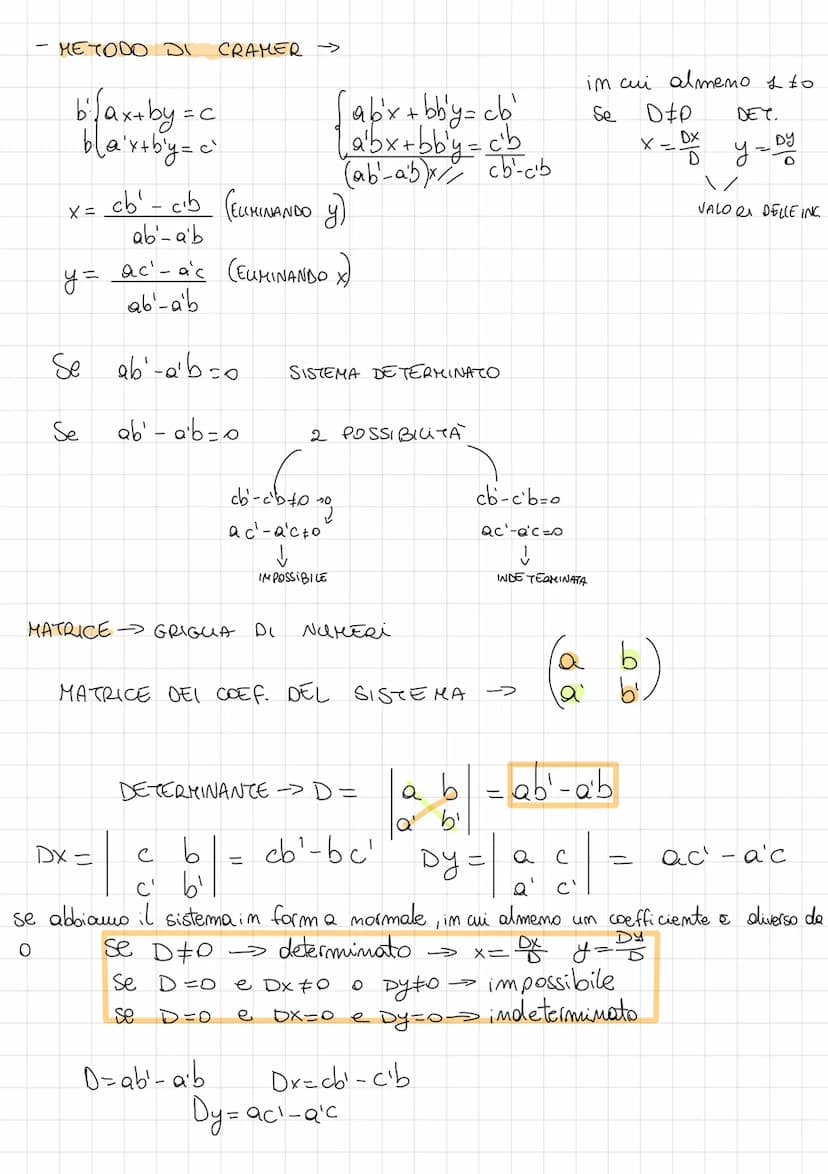 - METODO DI CRAMER →
in cui almeno 1 ≠0
b' { ax+by = c
b { a'x+b'y = c'
{ ab'x + bb'y = cb'
a'bx + bb'y = c'b
(ab'-a'b)x // cb'-c'b
Se D≠0 DET.
x = Dx/D y = Dy/D
VALORI DELLE INC.
x = (cb' - c'b)/(ab'-a'b) (ELIMINANDO y)
y = (ac' - a'c)/(ab'-a'b) (ELIMINANDO x)
Se ab'-a'b=0 SISTEMA DETERMINATO
Se ab' - a'b=0 2 POSSIBILITÀ
cb'-c'b≠0 →o cb'-c'b=0
ac'-a'c≠0 ac'-a'c=0
↓ ↓
IMPOSSIBILE INDETERMINATA
MATRICE → GRIGLIA DI NUMERI
MATRICE DEI COEF. DEL SISTEMA →
(a b
a' b')
DETERMINANTE → D = |a b
a' b'| = ab'-a'b
Dx = |c b
c' b'| = cb'-bc'
Dy = |a c
a' c'| = ac' - a'c
se abbiamo il sistema in forma normale, in cui almeno un coefficiente è diverso da
0 se D≠0 → determinato → x = Dx/D y = Dy/D
se D=0 e Dx≠0 o Dy≠0 → impossibile
se D=0 e Dx=0 e Dy=0 → indeterminato
D=ab'-a'b Dx=cb'-c'b
Dy=ac'-a'c